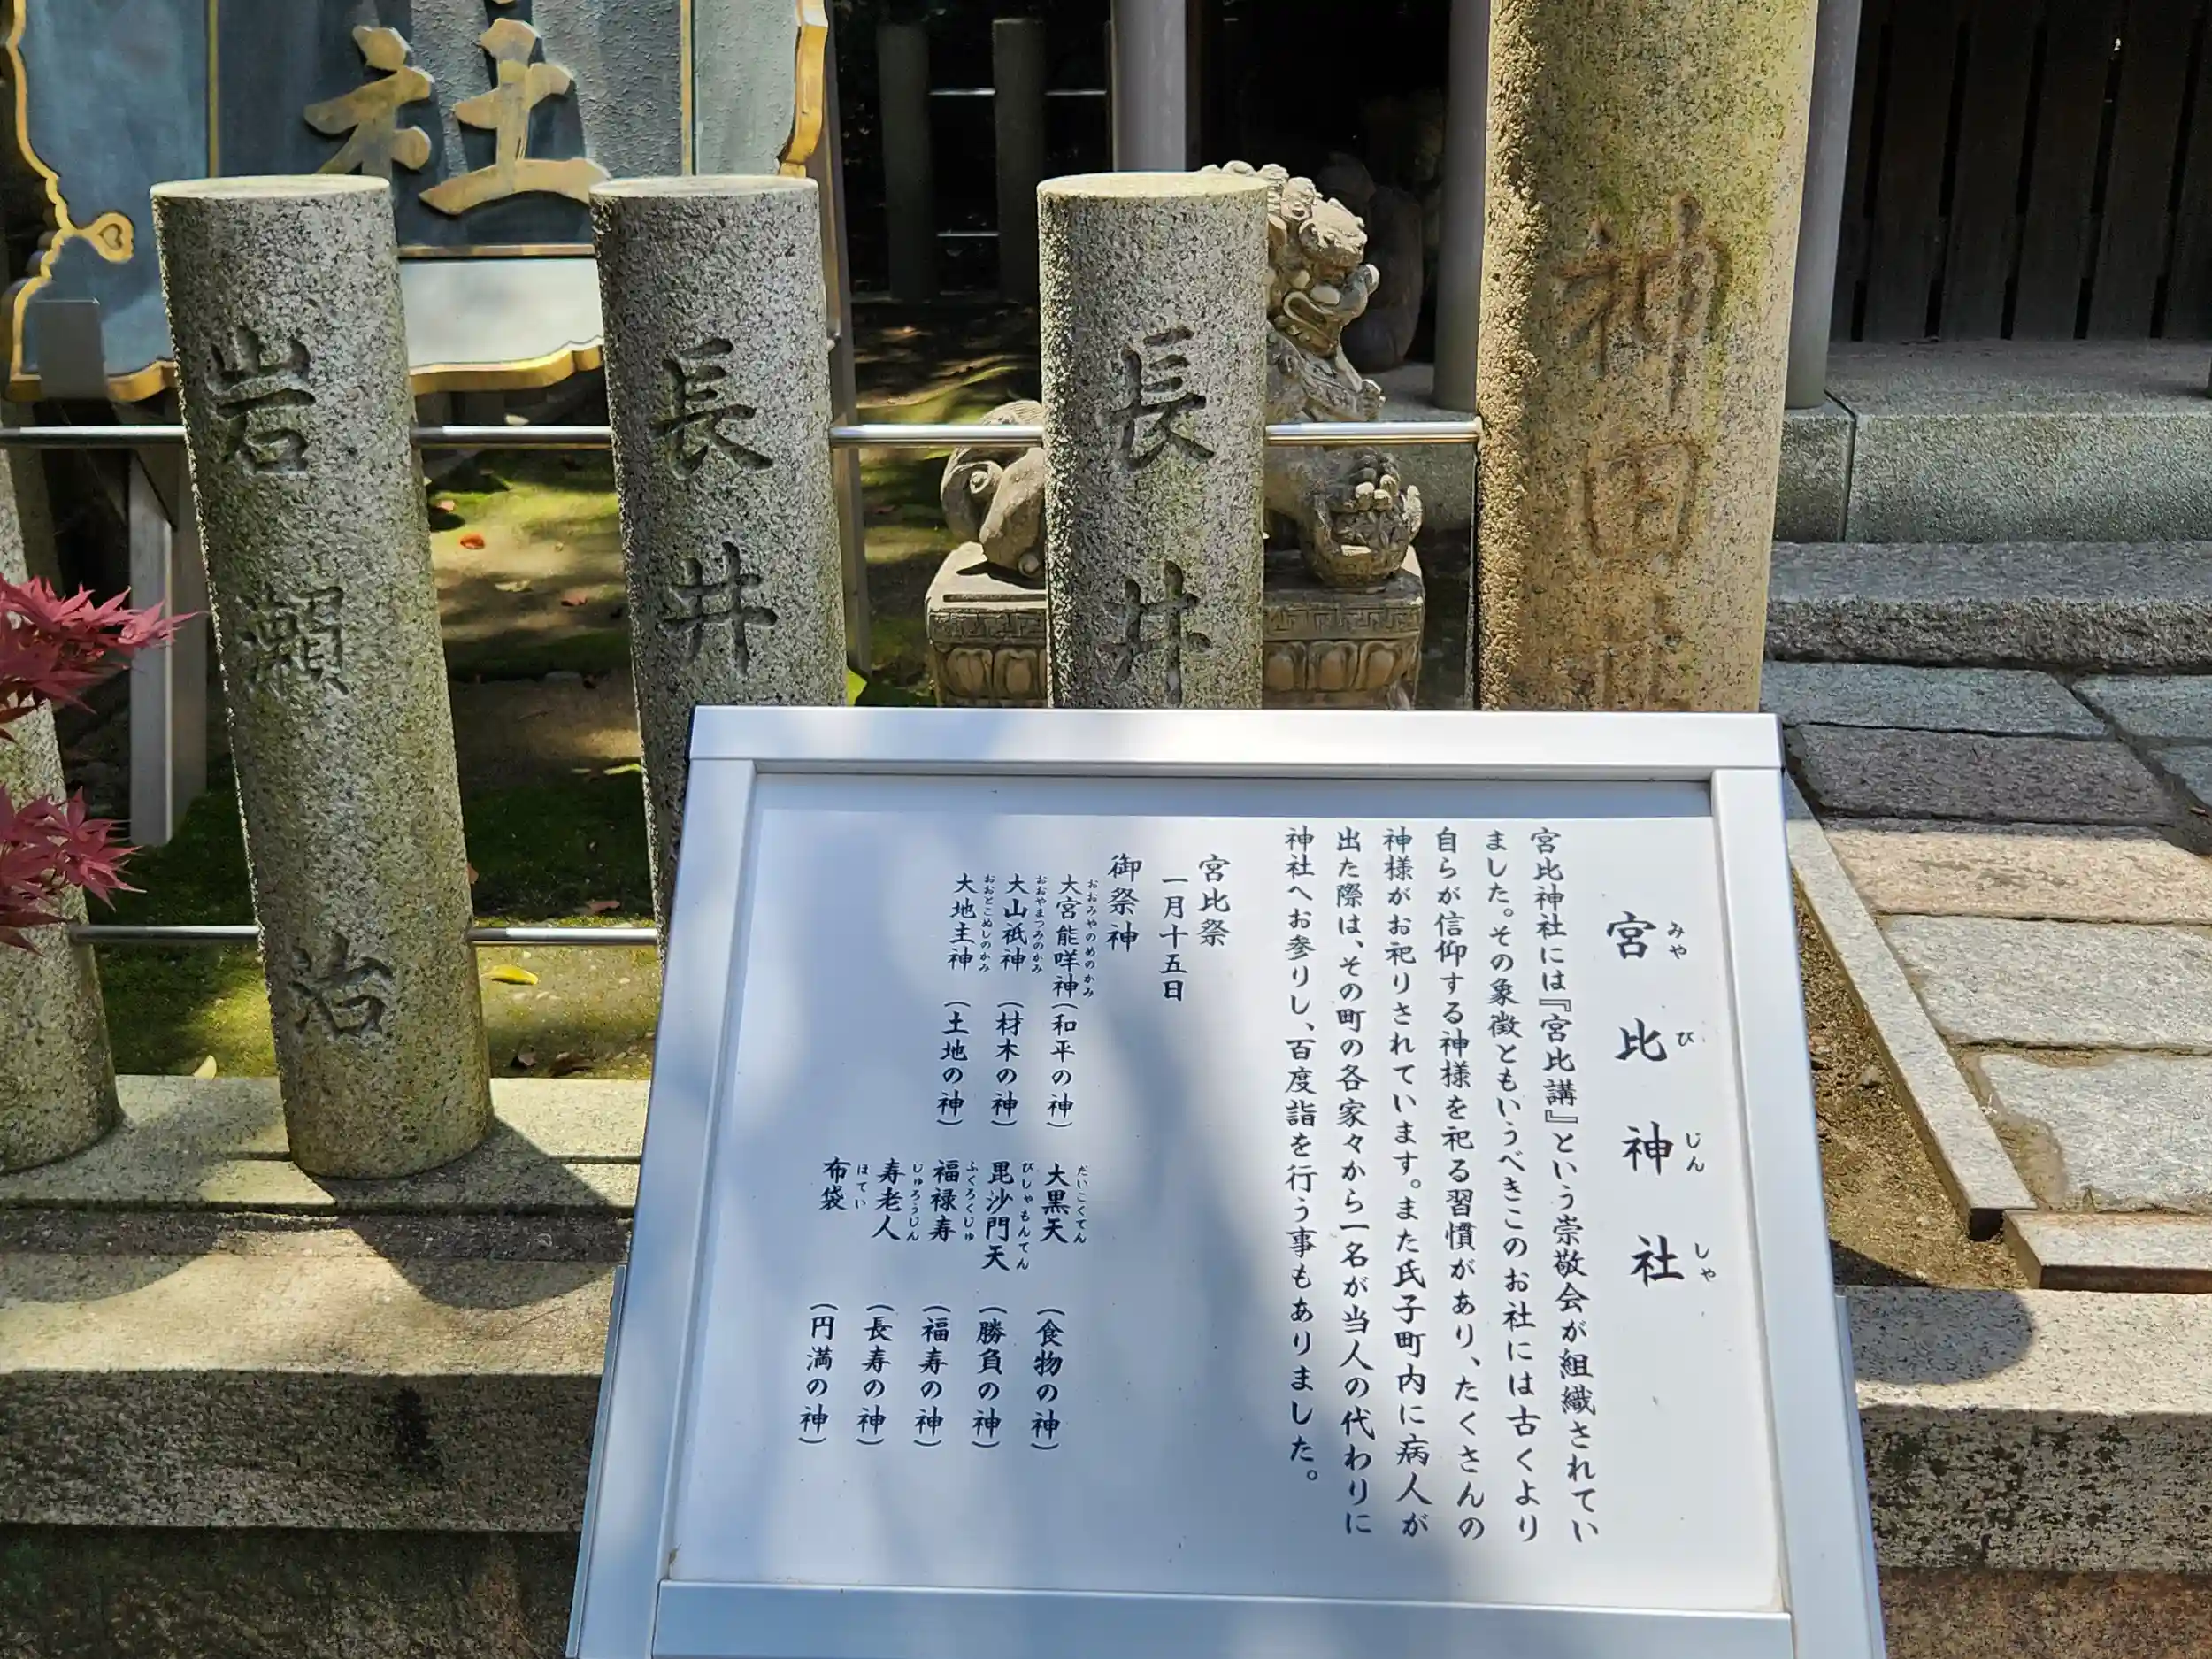 社
岩瀬治
長井
長井
神田
宮比神社
みやびじんしゃ
宮比神社には『宮比講』という崇敬会が組織されてい
ました。その象徴ともいうべきこのお社には古くより
自らが信仰する神様を祀る習慣があり、たくさんの
神様がお祀りされています。また氏子町内に病人が
出た際は、その町の各家々から一名が当人の代わりに
神社へお参りし、百度詣を行う事もありました。
宮比祭
一月十五日
御祭神
大宮能咩神（和平の神）
おおみやのめのかみ
大山祇神（材木の神）
おおやまつみのかみ
大地主神（土地の神）
おおとこぬしのかみ
大黒天（食物の神）
だいこくてん
毘沙門天（勝負の神）
びしゃもんてん
福禄寿（福寿の神）
ふくろくじゅ
寿老人（長寿の神）
じゅろうじん
布袋（円満の神）
ほてい